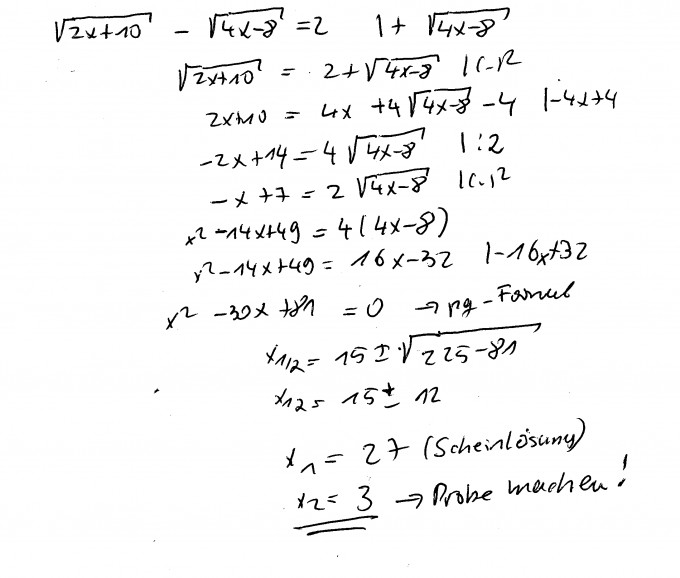 √(2x+10) - √(4x-8) = 2 | + √(4x-8)
√(2x+10) = 2+√(4x-8) |(..)²
2x+10 = 4x +4√(4x-8) -4 |-4x+4
-2x+14 = 4√(4x-8) |:2
-x+7 = 2√(4x-8) |(..)²
x²-14x+49 = 4(4x-8)
x²-14x+49 = 16x-32 |-16x+32
x² -30x +81 = 0 → pq-Formel
x1/2 = 15 ± √(225-81)
x12 = 15 ± 12
x1 = 27 (Scheinlösung)
x2 = 3 → Probe machen!